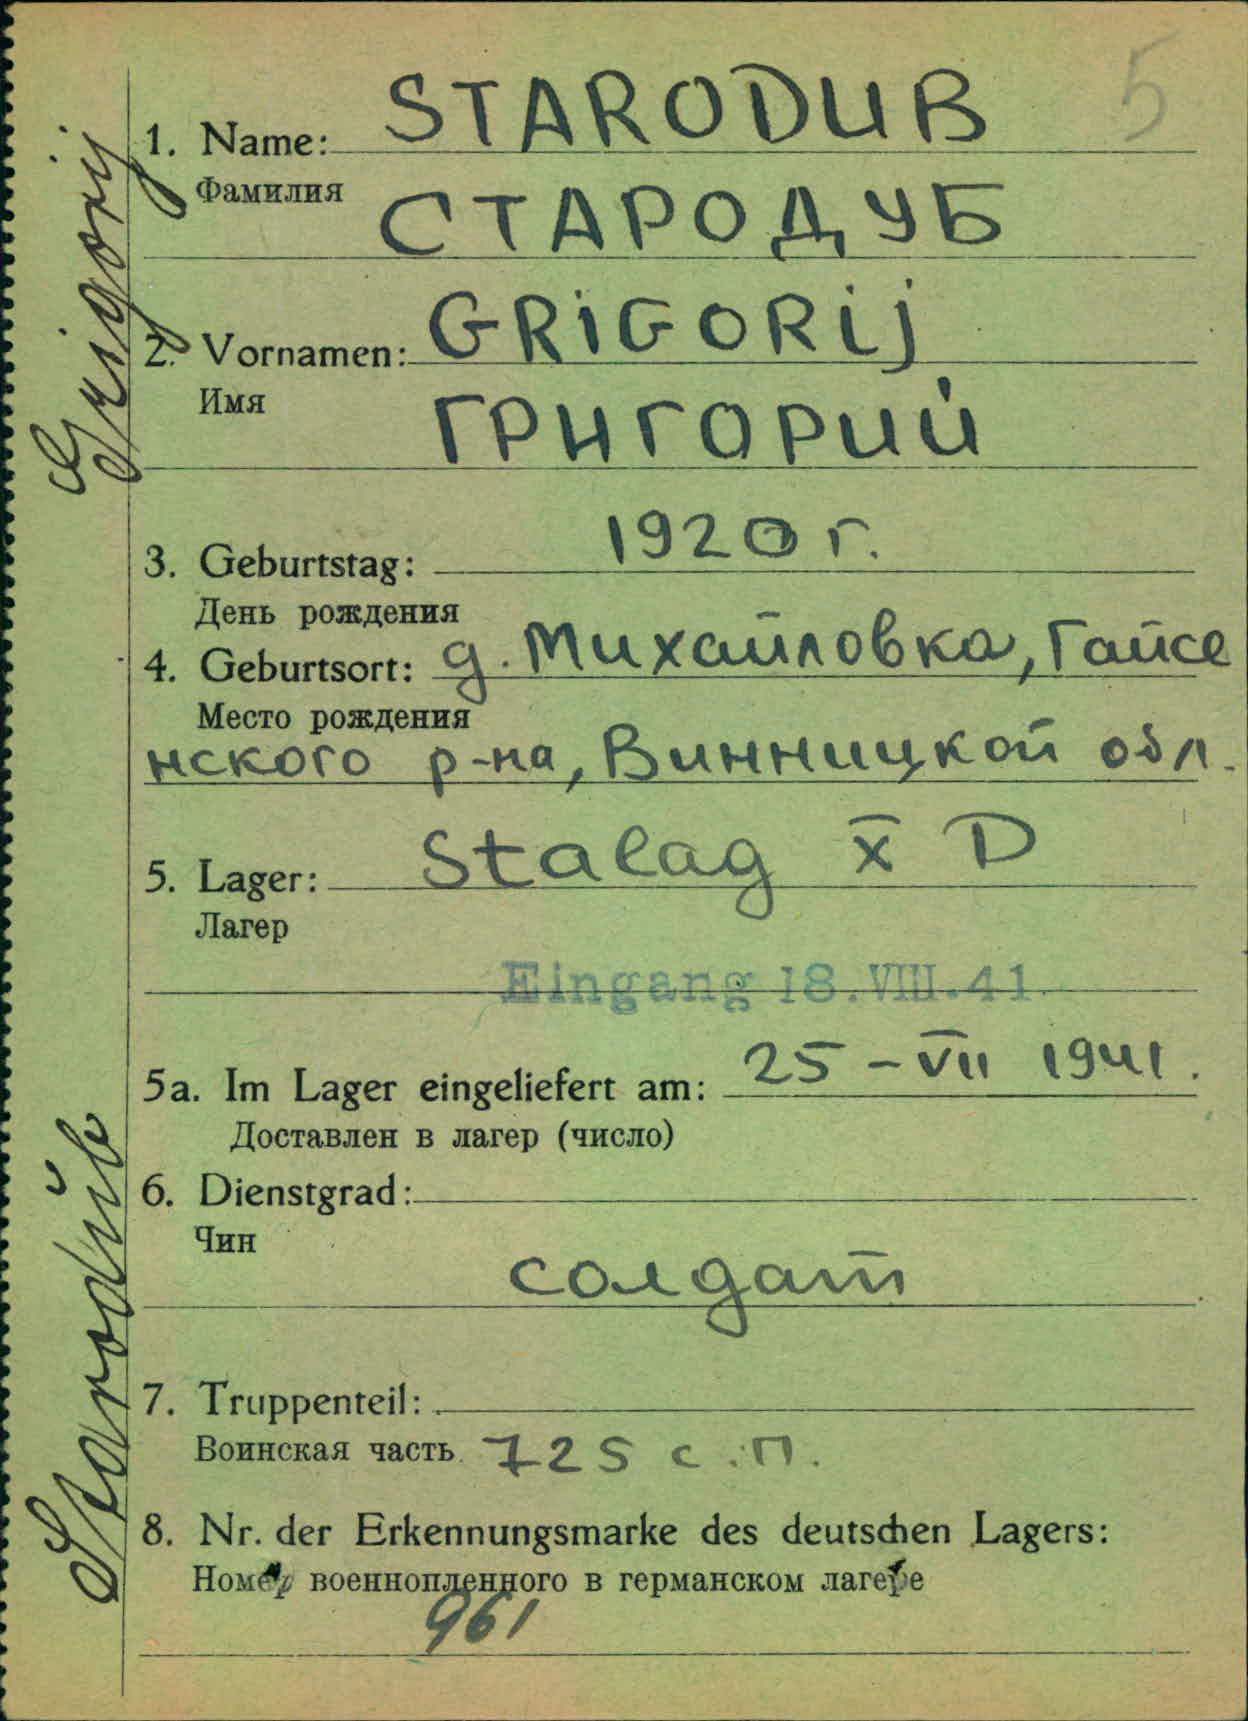 5
STARODUB
1. Name:
Фамилия
СТАРОДУБ
GRiGORij
2. Vornamen:
Имя
ГРИГОРИЙ
1920 г.
3. Geburtstag:
День рождения
4. Geburtsort: д. Михайловка, Гайсе
Место рождения
нского р-на, Винницкой обл.
5. Lager: Stalag X D
Лагер
Eingang 18.VIII.41
5a. Im Lager eingeliefert am: 25 – VII 1941.
Доставлен в лагер (число)
6. Dienstgrad:
Чин
солдат
7. Truppenteil:
Воинская часть 725 с.п.
8. Nr. der Erkennungsmarke des deutschen Lagers:
Номер военнопленного в германском лагере
961
Starodŭb Grigorij